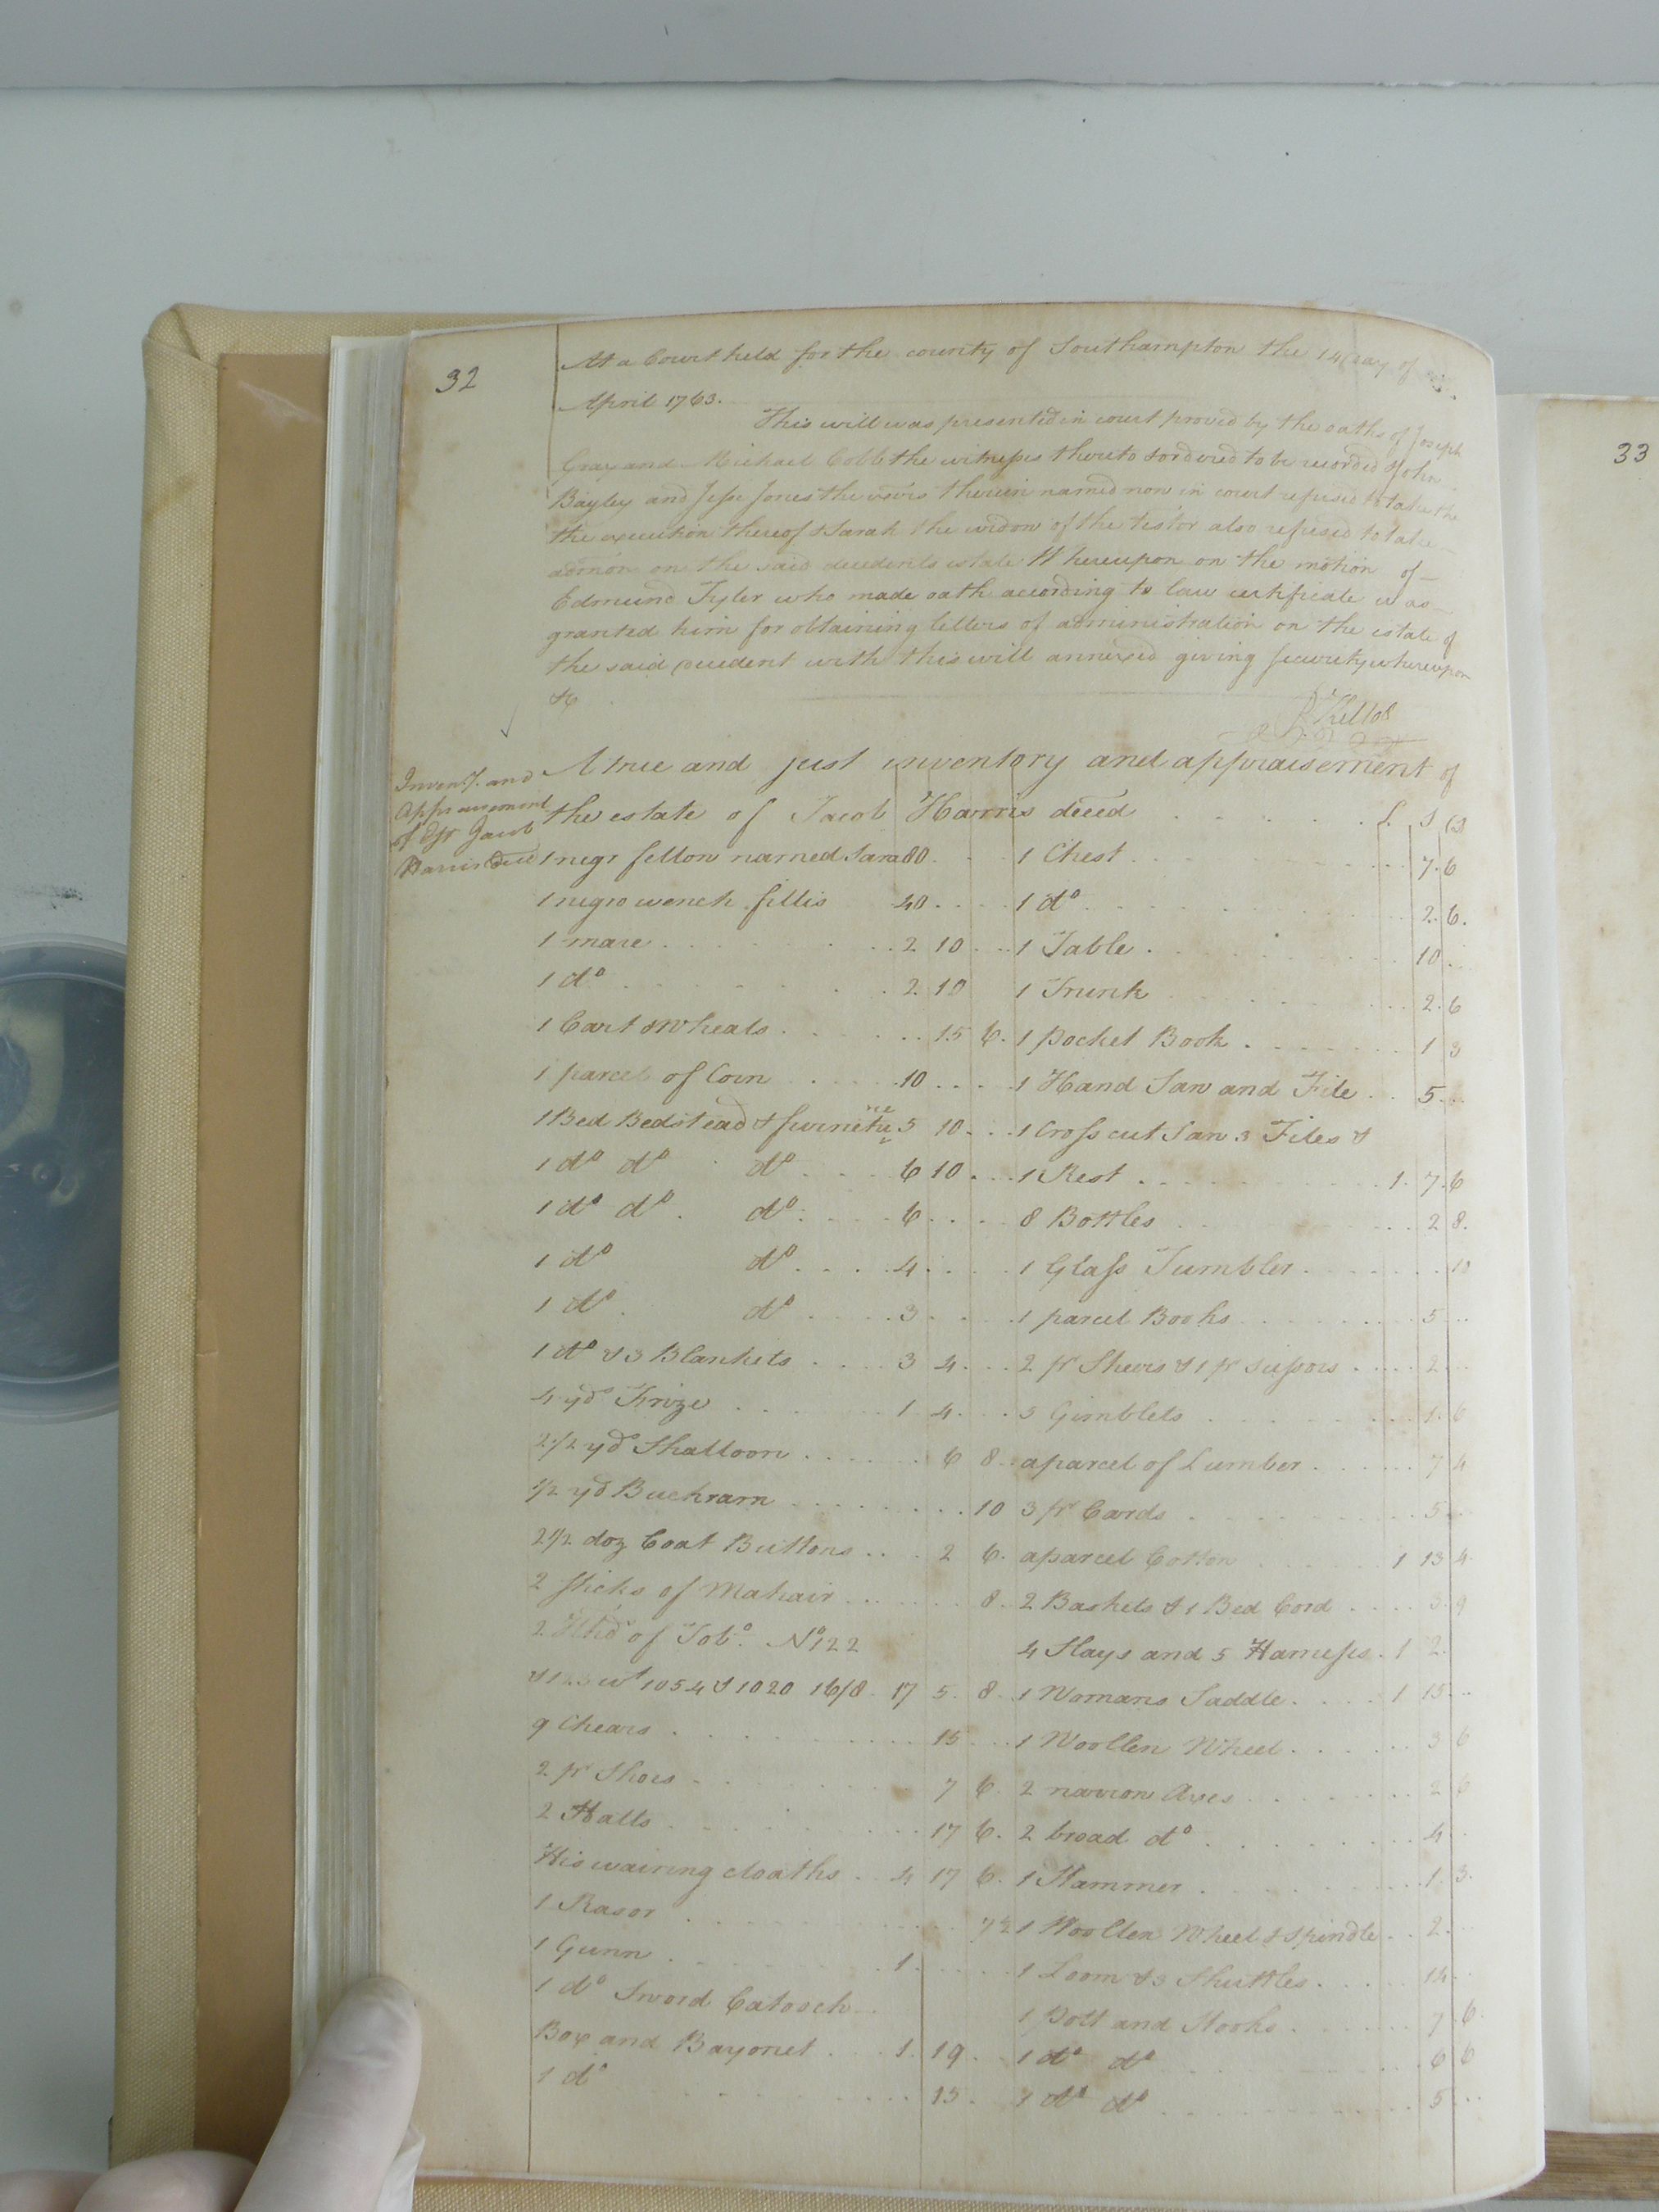 32
At a Court held for the county of Southampton the 14 day of
April 1763.
This will was presented in court proved by the oaths of Joseph
Gray and Michael Cobb the witnesses thereto & ordered to be recorded & John
Bayley and Jesse Jones the exors therein named now in court refused to take the
the execution thereof & Sarah the widow of the testor also refused to take
admon on the said decedents estate Whereupon on the motion of
Edmund Tyler who made oath according to law certificate was
granted him for obtaining letters of administration on the estate of
the said decedent with this will annexed giving security whereupon
&c
R Kello
Invent. and
Appraisement
of Est Jacob
Harris Decd
A true and just inventory and appraisement of
the estate of Jacob Harris deced £ S D
1 negr fellow named Sara 80 . . 1 Chest . . 7. 6
1 negro wench fillis 40 . . 1 do . . 2. 6.
1 mare . . 2 10 . . 1 Table . . 10 . .
1 do . . 2. 10 1 Trunk . . 2. 6
1 Cart & Wheals . . 15 6. 1 Pocket Book . . 1 3
1 parcel of Corn . . 10 . . 1 Hand Saw and File . . 5 . .
1 Bed Bedstead & furnetu re 5 10 . . 1 Cross cut Saw 3 Files &
1 do do do . . 6 10 . . 1 Rest . . 1. 7. 6
1 do do . do . . 6 . . 8 Bottles . . 2 8.
1 do do . . 4 . . 1 Glass Tumbler . . 10
1 do . do . . 3 . . 1 parcel Books . . 5 . .
1 do & 3 Blankets . . 3 4 . . 2 pr Sheers & 1 pr scissors . . 2 . .
4 yds Frize . . 1. 4 . . 5 Gimblets . . 1. 6
2 1/2 yds Shalloon . . 6 8 . . a parcel of Lumber . . 7 4
1/2 yd Buckram . . 10 3 pr Cards . . 5 . .
2 1/2 doz Coat Buttons . . 2 6. a parcel Cotton 1 13 4
2 sticks of Mahair . . 8. 2 Baskets & 1 Bed Cord . . 3. 9
2 Hhds of Tobo. No 122 4 Slays and 5 Harnesses . 1 2.
& 123 wt 1054 & 1020 16/8 . 17 5. 8. 1 Womans Saddle . . 1 15 . .
9 Chears . . 15 . . 1 Woollen Wheel . . 3 6
2 pr Shoes . . 7 6. 2 narrow Axes . . 2 6
2 Hatts . . 17 6. 2 broad do . . 4 . .
His wairing cloaths . . 4 17 6. 1 Hammer . . 1. 3.
1 Rasor . . 7 1/2 1 Woollen Wheel & Spindle . . 2 . .
1 Gunn . . 1 . . 1 Loom & 3 Shuttles . . 14 . .
1 do Sword Catosch 1 Pott and Hooks . . 7. 6.
Box and Bayonet . . 1. 19 . . 1 do do . . 6 6
1 do . . 15 . 1 do do . . 5 . .
33